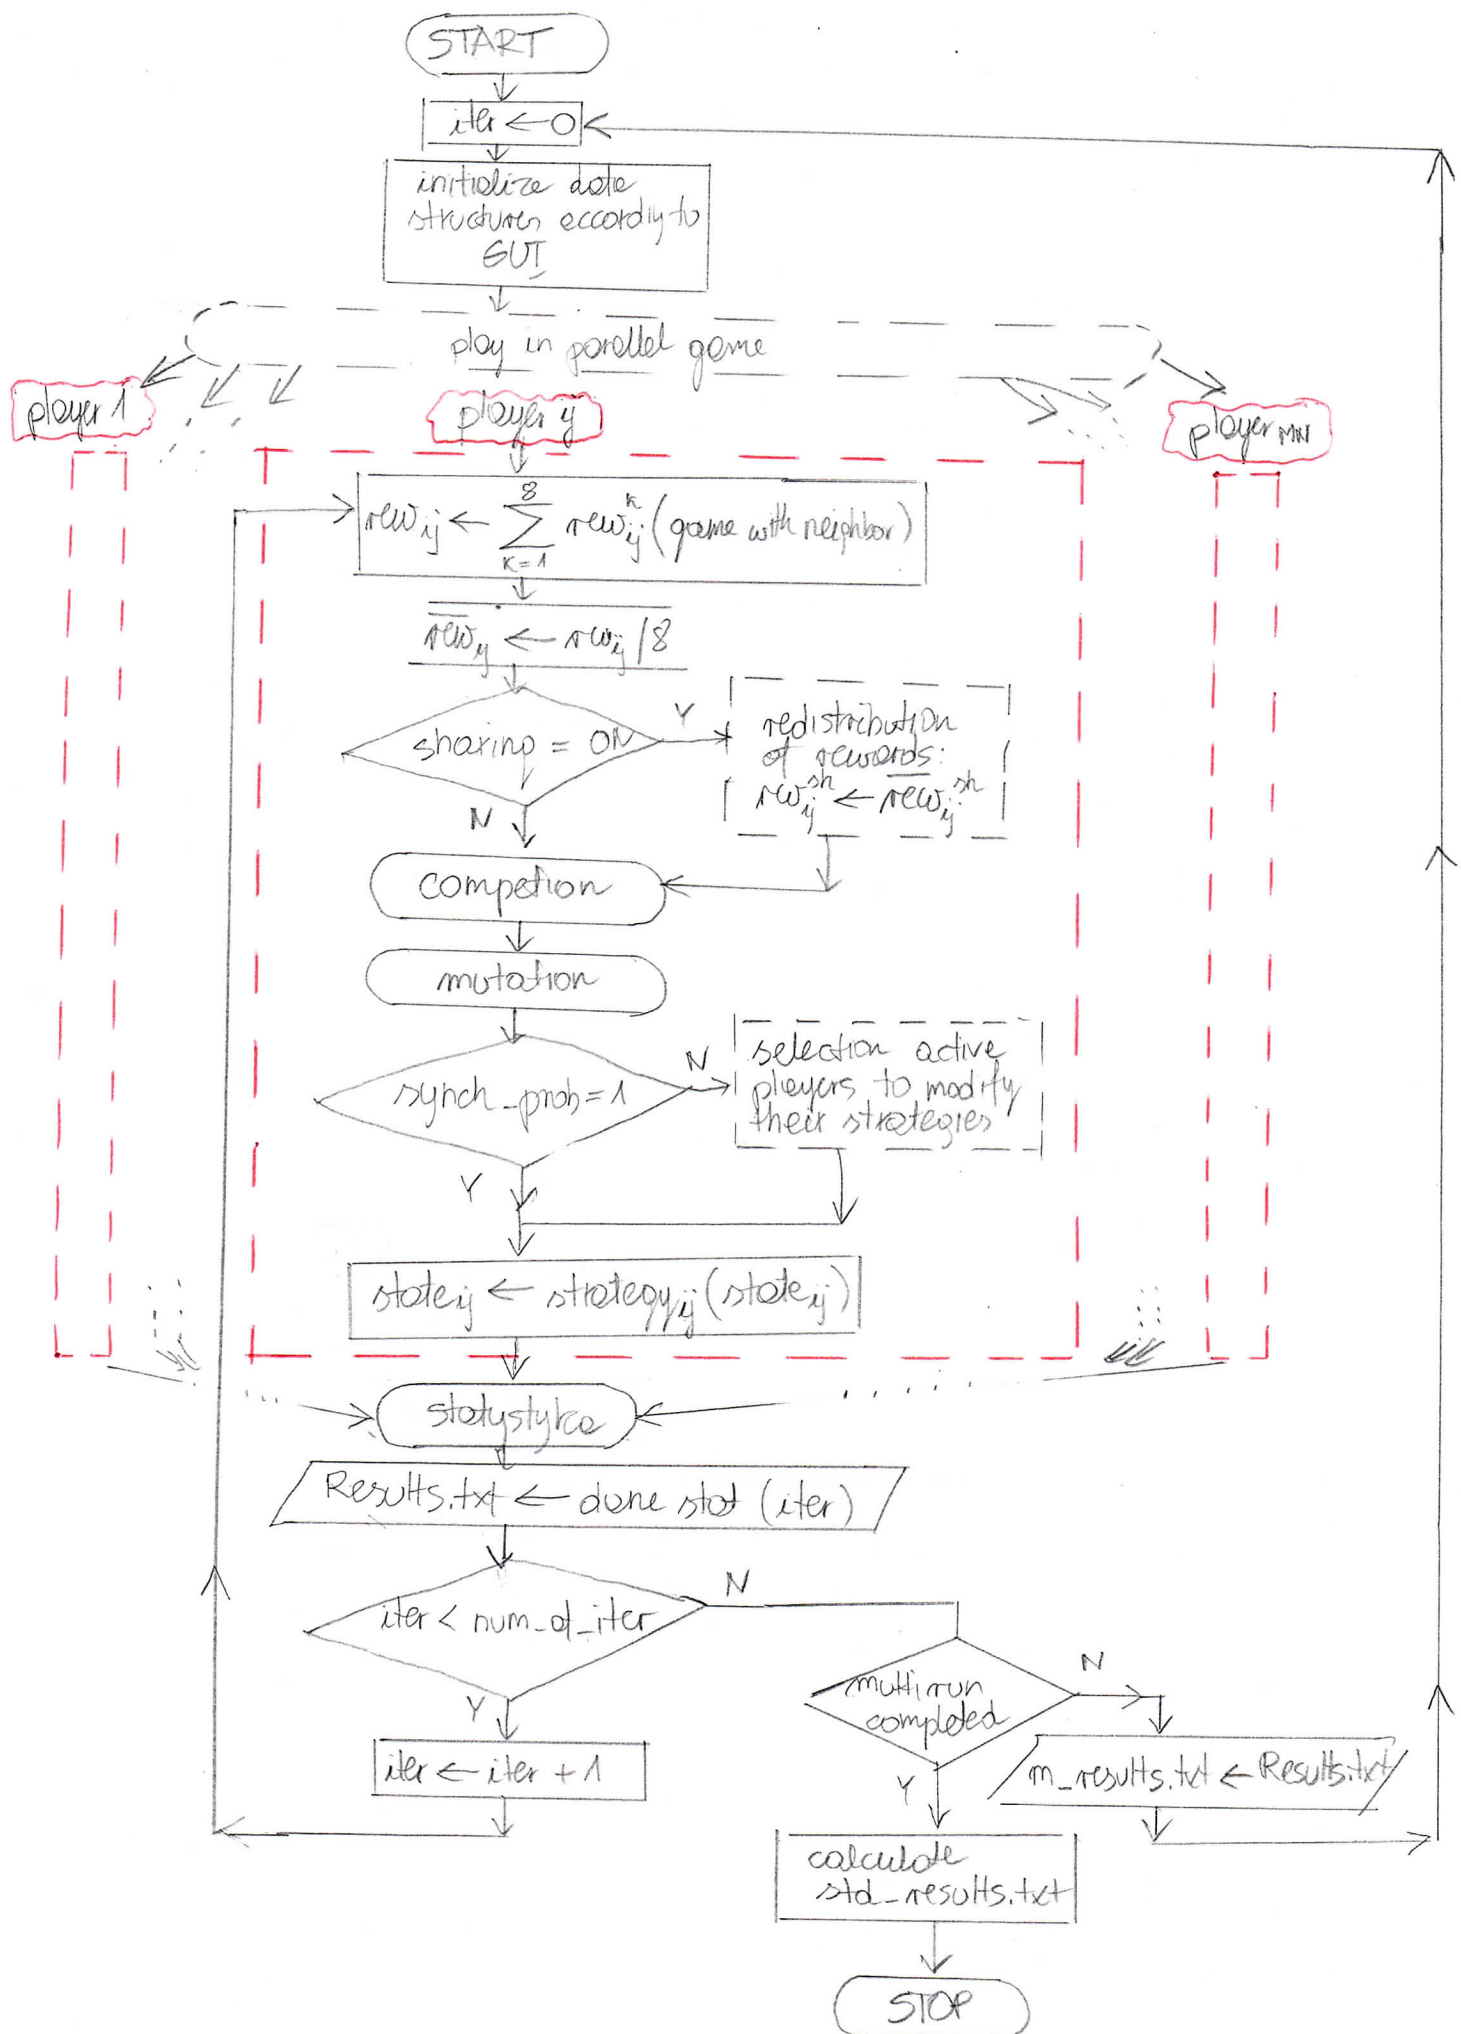 START
iter ← 0
initialize data
structures eccordiy to
GUI
play in parallel game
player 1
player ij
player MN
rew ij ← ∑ k=1 8 rew ij k (game with neighbor)
rew ij ← rew ij / 8
sharing = ON
Y
N
redistribution
of rewards:
rew ij sh ← rew ij sh
competion
mutation
synch_prob = 1
N
Y
selection active
players to modify
their strategies
state ij ← strategy ij (state ij)
statystyka
Results.txt ← dane stat (iter)
iter < num_of_iter
N
Y
iter ← iter + 1
multirun
completed
N
Y
m_results.txt ← Results.txt
calculate
std_results.txt
STOP